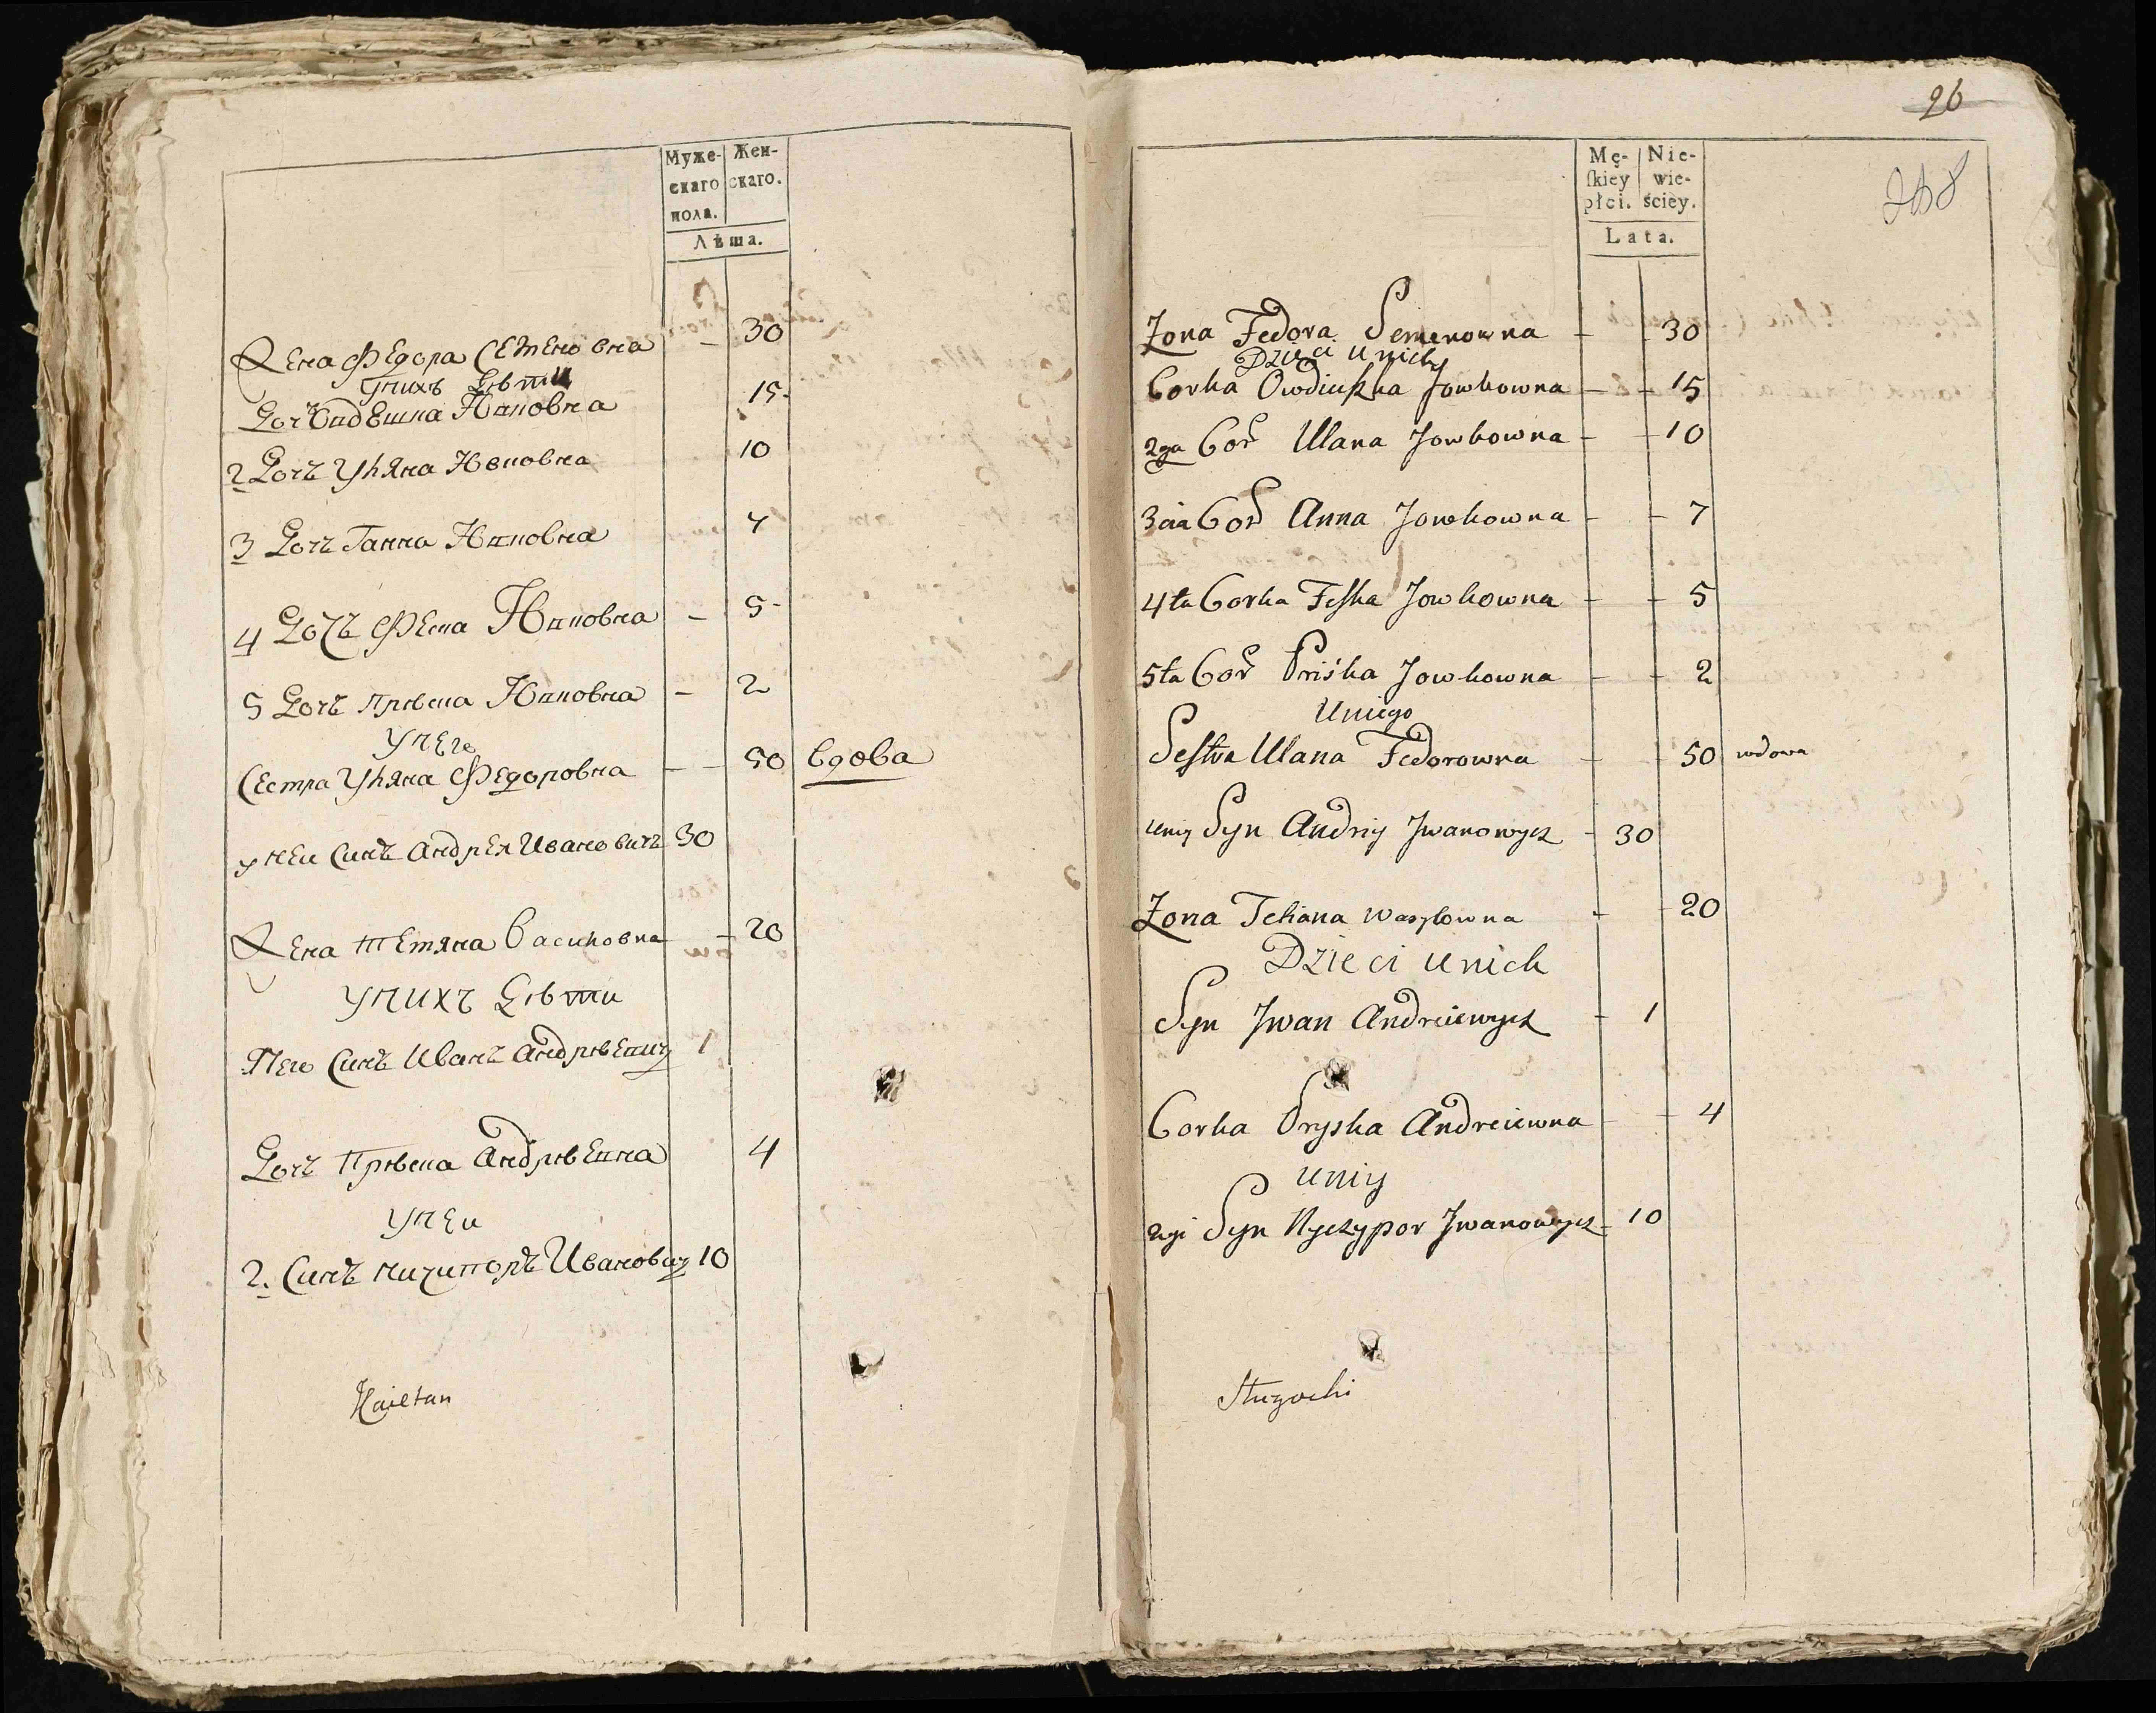 Муже-
скаго
пола.
Жен-
скаго.
Лѣта.
Жена Федора Семеновна – 30
У нихъ дѣти
Дочъ Овдешка Ювковна 15
2 Дочъ Уляна Ювковна 10
3 Дочъ Ганна Ювковна 7
4 Дочъ Феска Ювковна – 5
5 Дочъ Прѣска Ювковна – 2
У него
Сестра Уляна Федоровна – – 50 вдова
У неи Синъ Андрея Ивановичъ 30
Жена Тетяна Василовна – 20
У нихъ дѣти
Синъ Иванъ Андрѣевич 1
Дочъ Прѣска Андрѣевна 4
У неи
2. Синъ Ничипоръ Иванович 10
Kaietan
26
Mę-
ſkiey
płci.
Nie-
wie-
ściey.
Lata.
Zona Fedora Semenowna – 30
Dzieci u nich
Corka Owdiuszka Jowkowna – – 15
2ga Cor Ulana Jowkowna – – 10
3cia Cor Anna Jowkowna – – 7
4ta Corka Feſka Jowkowna – – 5
5ta Cor Priśka Jowkowna – – 2
U niego
Sestra Ulana Fedorowna – – 50 wdowa
U niy Syn Andriy Jwanowycz – 30
Zona Tetiana Wasylowna – – 20
Dzieci u nich
Syn Jwan Andreiewycz – 1
Corka Pryska Andreiewna – – 4
U niy
2gi Syn Nyczypor Jwanowycz – 10